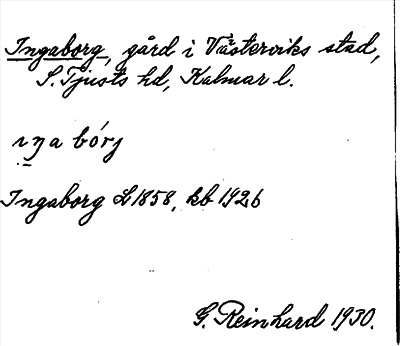 Ingaborg, gård i Västerviks stad,
S. Tjusts hd, Kalmar l.
ıŋa bórj
Ingaborg L 1858, kb 1926
G. Reinhard 1930.